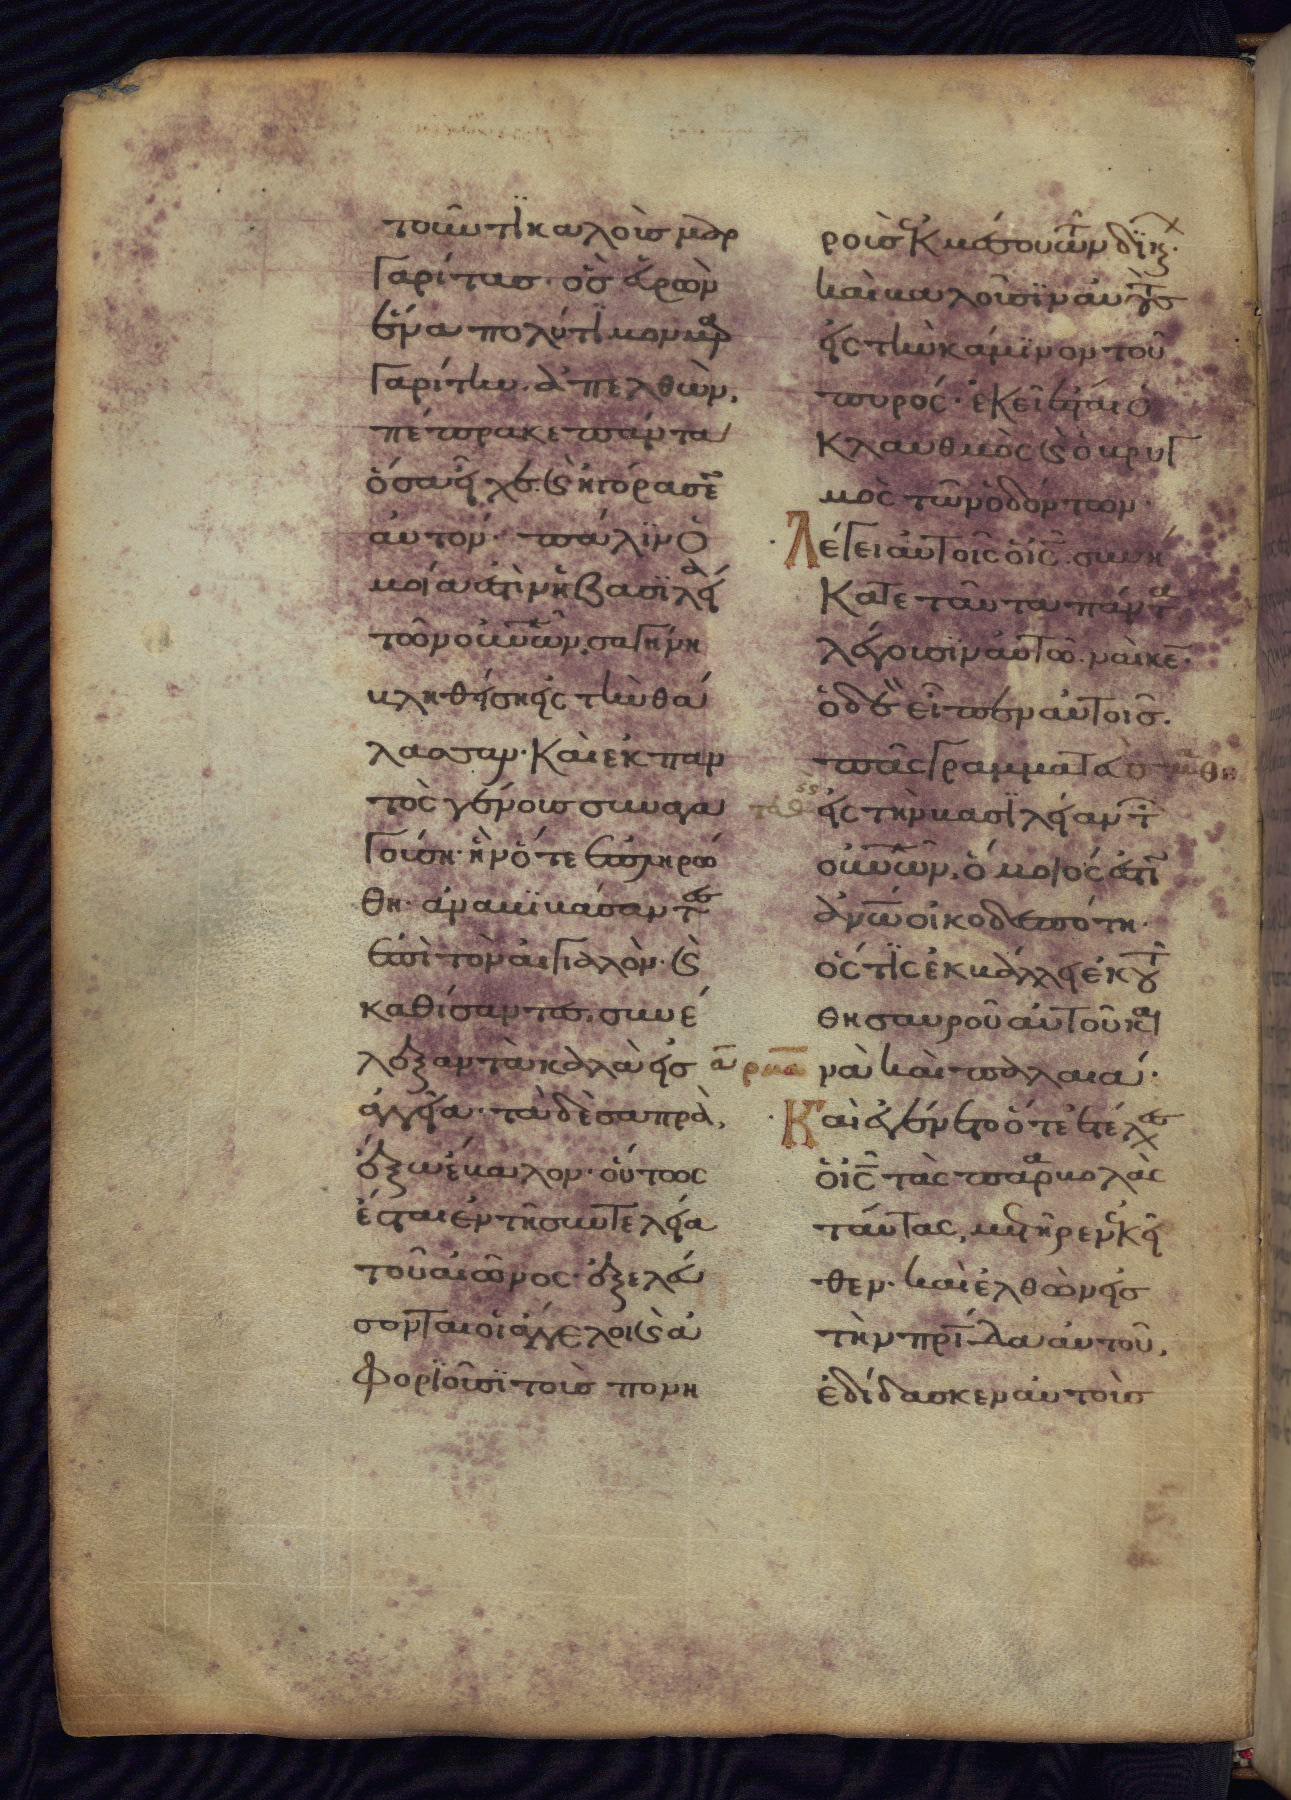 τοῦντι καλοὺσ μαρ
γαρίτασ· ὃσ εὑρὼν
ἕνα πολύτιμον μαρ
γαρίτην. ἀπελθὼν,
πέπρακε πάντα
ὅσα εἶχε. καὶ ἠγόρασεν
αὐτόν· πάλιν ὁ
μοία ἐστὶν ἡ βασιλεία
τῶν οὐνῶν, σαγήνη
βληθείση εἰς τὴν θά
λασσαν· καὶ ἐκ παν
τὸς γένουσ συναγα
γούση· ἣν ὅτε ἐπληρώ
θη· ἀναβιβάσαντες
ἐπὶ τὸν αἰγιαλὸν· καὶ
καθίσαντεσ. συνέ
λεξαν τὰ καλὰ εἰσ
ἀγγεῖα· τὰ δὲ σαπρὰ,
ἔξω ἔβαλον· οὕτως
ἔσται ἐν τῆ συντελεία
τοῦ αἰῶνος· ἐξελεύ
σονται οἱ ἄγγελοι καὶ ἀ
φοριοῦσι τοὺσ πονη
ροὺσ ἐκ μέσου τῶν δικ·
καὶ βαλοῦσιν αὐτοὺσ
εἰς τὴν κάμινον τοῦ
πυρός· ἐκεῖ ἔσται ὁ
κλαυθμὸς καὶ ὁ βρυγ
μὸς τῶν ὀδόντων·
Λέγει αὐτοῖς ὁ ἰς. συνή
κατε ταῦτα πάντα
λέγουσιν αὐτῶ. ναὶ κε·
ὁ δὲ εἶπεν αὐτοῖσ.
πᾶς γραμματεὺσ μαθη
τευθεὶσ εἰς τὴν βασιλείαν τ
οὐνῶν, ὅμοιός ἐστιν
ἀνω οἰκοδεσπότη·
ὅστις ἐκβάλλει ἐκ τοῦ
θησαυροῦ αὐτοῦ και
νὰ καὶ παλαιά·
Καὶ ἐγένετο ὅτε ἐτέλεσ
ὁ ἰς τὰς παραβολὰς
ταύτας, μετῆρεν ἐκεῖ
θεν· καὶ ἐλθὼν εἰσ
τὴν πρίδα αὐτοῦ,
ἐδίδασκεν αὐτοὺσ